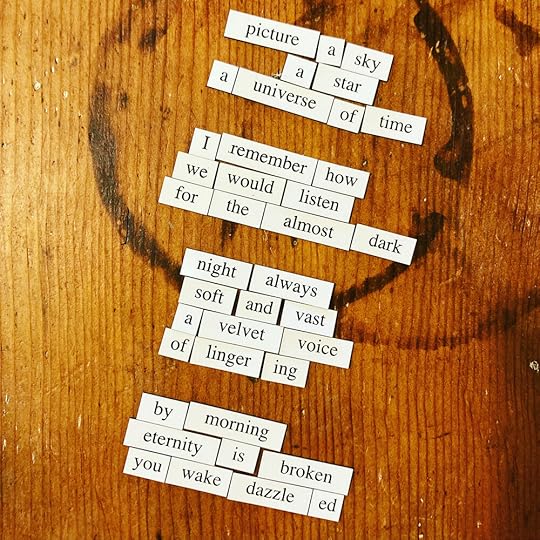 picture a sky
a star
a universe of time
I remember how
we would listen
for the almost dark
night always
soft and vast
a velvet voice
of linger ing
by morning
eternity is broken
you wake dazzle ed